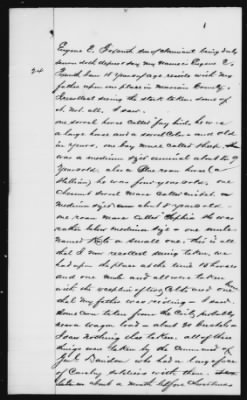 Eugene E. son of claimant being duly
sworn doth depose & say my name is Eugene E.
am 18 years of age reside with my
father upon our place in County.
I recollect seeing the stock taken some of
it. Not all. I saw
one sorrel horse called he was
a large horse and a sorrel color and old
in years, one bay mare called
was a medium sized animal about 9
years old, also Blue roan horse (a
Stallion), he was four years old; one
sorrel mare called
medium size about 8 years old.
one roan mare called Sophia she was
rather below medium size & one mule
named Kate a small one. this is all
that I now recollect seeing taken, we
had upon the place at the time 18 horses
and one mule and all were taken
with the exception of two Colts and one
that my father was riding. I saw
some corn taken from the Crib, probably
a wagon load about 30 bushels
I saw nothing else taken. all of these
things were taken by the command of
Genl who had a large force
of Cavalry soldiers with them.
taken about a month before Christmas
24
1